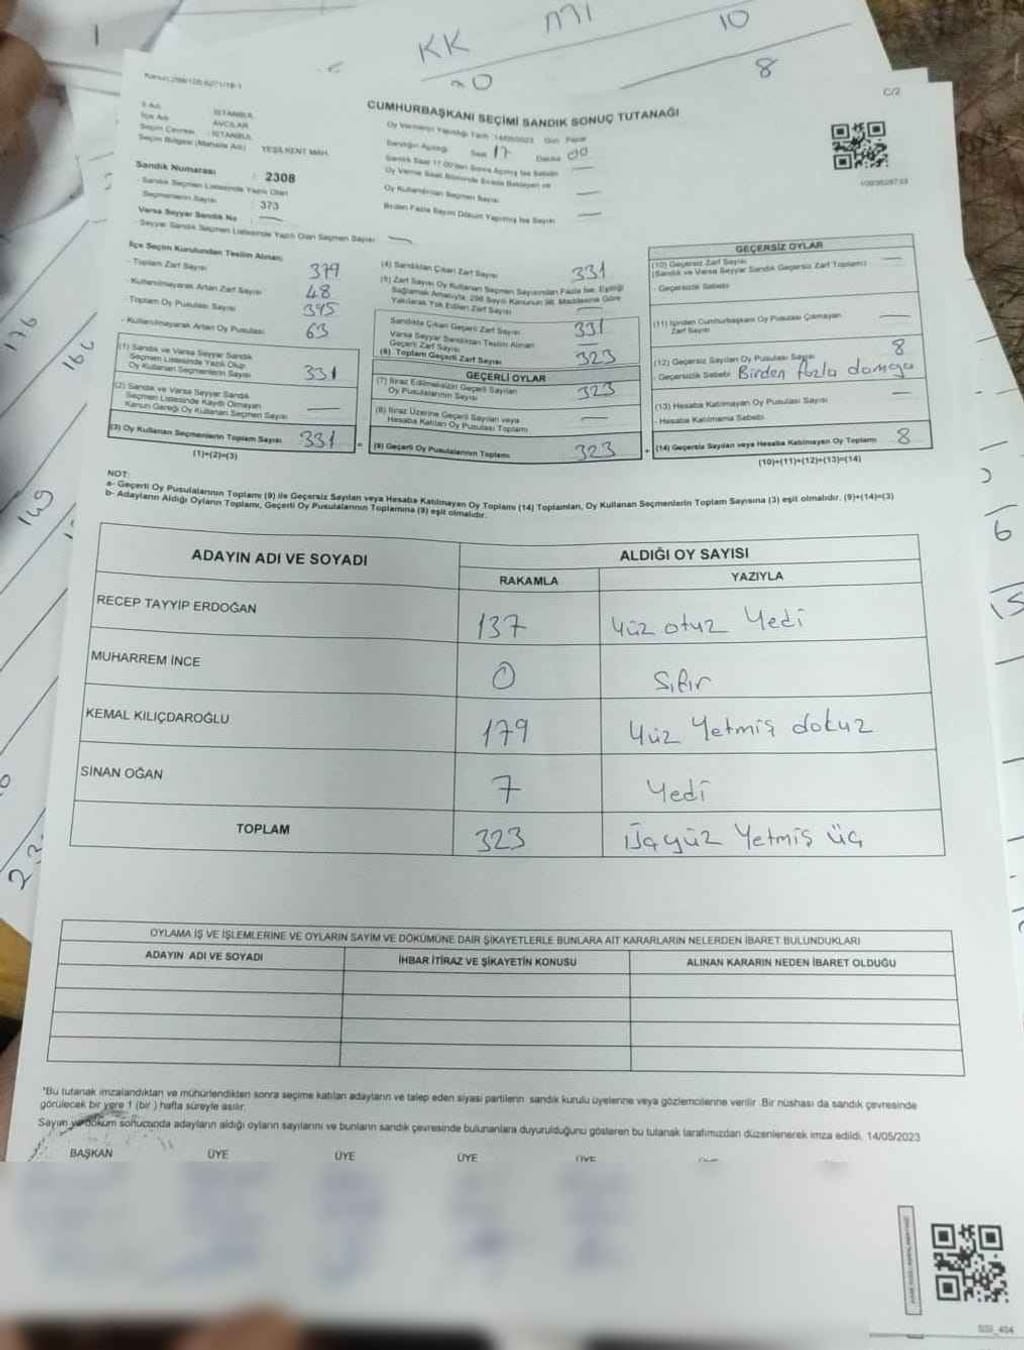 KK
10
8
C/2
CUMHURBAŞKANI SEÇİMİ SANDIK SONUÇ TUTANAĞI
İl Adı : İSTANBUL
İlçe Adı : AVCILAR
Seçim Çevresi : İSTANBUL
Seçim Bölgesi (Mahalle Adı) : YEŞİLKENT MAH.
Sandık Numarası : 2308
Sandık Seçmen Listesinde Yazılı Olan
Seçmenlerin Sayısı : 373
Varsa Seyyar Sandık No : —
Seyyar Sandık Seçmen Listesinde Yazılı Olan Seçmen Sayısı : —
Oy Vermenin Yapıldığı Tarih : 14/05/2023 Gün : Pazar
Sandığın Açıldığı Saat 17 Dakika 00
Sandık Saat 17.00'den Sonra Açılmış İse Sebebi —
Oy Verme Saati Bitiminde Sırada Bekleyen ve
Oy Kullandırılan Seçmen Sayısı —
Birden Fazla Sayım Döküm Yapılmış İse Sayısı —
İlçe Seçim Kurulundan Teslim Alınan;
- Toplam Zarf Sayısı 379
- Kullanılmayarak Artan Zarf Sayısı 48
- Toplam Oy Pusulası Sayısı 395
- Kullanılmayarak Artan Oy Pusulası 63
(1) Sandık ve Varsa Seyyar Sandık
Seçmen Listesinde Yazılı Olup
Oy Kullanan Seçmenlerin Sayısı 331
(2) Sandık ve Varsa Seyyar Sandık
Seçmen Listesinde Kayıtlı Olmayan
Kanun Gereği Oy Kullanan Seçmen Sayısı —
(3) Oy Kullanan Seçmenlerin Toplam Sayısı 331
(1)+(2)=(3)
(4) Sandıktan Çıkan Zarf Sayısı 331
(5) Zarf Sayısı Oy Kullanan Seçmen Sayısından Fazla İse, Eşitliği
Sağlamak Amacıyla, 298 Sayılı Kanunun 98. Maddesine Göre
Yakılarak Yok Edilen Zarf Sayısı —
Sandıkta Çıkan Geçerli Zarf Sayısı 331
Varsa Seyyar Sandıktan Teslim Alınan
Geçerli Zarf Sayısı —
(6) Toplam Geçerli Zarf Sayısı 323
GEÇERLİ OYLAR
(7) İtiraz Edilmeksizin Geçerli Sayılan
Oy Pusulalarının Sayısı 323
(8) İtiraz Üzerine Geçerli Sayılan veya
Hesaba Katılan Oy Pusulası Toplamı —
(9) Geçerli Oy Pusulalarının Toplamı 323
GEÇERSİZ OYLAR
(10) Geçersiz Zarf Sayısı —
(Sandık ve Varsa Seyyar Sandık Geçersiz Zarf Toplamı)
- Geçersizlik Sebebi
(11) İçinden Cumhurbaşkanı Oy Pusulası Çıkmayan
Zarf Sayısı —
(12) Geçersiz Sayılan Oy Pusulası Sayısı 8
- Geçersizlik Sebebi Birden fazla damga
(13) Hesaba Katılmayan Oy Pusulası Sayısı —
- Hesaba Katılmama Sebebi
(14) Geçersiz Sayılan veya Hesaba Katılmayan Oy Toplamı 8
(10)+(11)+(12)+(13)=(14)
NOT:
a- Geçerli Oy Pusulalarının Toplamı (9) ile Geçersiz Sayılan veya Hesaba Katılmayan Oy Toplamı (14) Toplamları, Oy Kullanan Seçmenlerin Toplam Sayısına (3) eşit olmalıdır. (9)+(14)=(3)
b- Adayların Aldığı Oyların Toplamı, Geçerli Oy Pusulalarının Toplamına (9) eşit olmalıdır.
ADAYIN ADI VE SOYADI ALDIĞI OY SAYISI
RAKAMLA YAZIYLA
RECEP TAYYİP ERDOĞAN 137 Yüz otuz Yedi
MUHARREM İNCE 0 Sıfır
KEMAL KILIÇDAROĞLU 179 Yüz Yetmiş dokuz
SİNAN OĞAN 7 Yedi
TOPLAM 323 Üçyüz Yetmiş üç
OYLAMA İŞ VE İŞLEMLERİNE VE OYLARIN SAYIM VE DÖKÜMÜNE DAİR ŞİKAYETLERLE BUNLARA AİT KARARLARIN NELERDEN İBARET BULUNDUKLARI
ADAYIN ADI VE SOYADI İHBAR İTİRAZ VE ŞİKAYETİN KONUSU ALINAN KARARIN NEDEN İBARET OLDUĞU
*Bu tutanak imzalandıktan ve mühürlendikten sonra seçime katılan adayların ve talep eden siyasi partilerin sandık kurulu üyelerine veya gözlemcilerine verilir. Bir nüshası da sandık çevresinde
görülecek bir yere 1 (bir) hafta süreyle asılır.
Sayım ve döküm sonucunda adayların aldığı oyların sayılarını ve bunların sandık çevresinde bulunanlara duyurulduğunu gösteren bu tutanak tarafımızdan düzenlenerek imza edildi. 14/05/2023
BAŞKAN ÜYE ÜYE ÜYE ÜYE
176
166
149
6